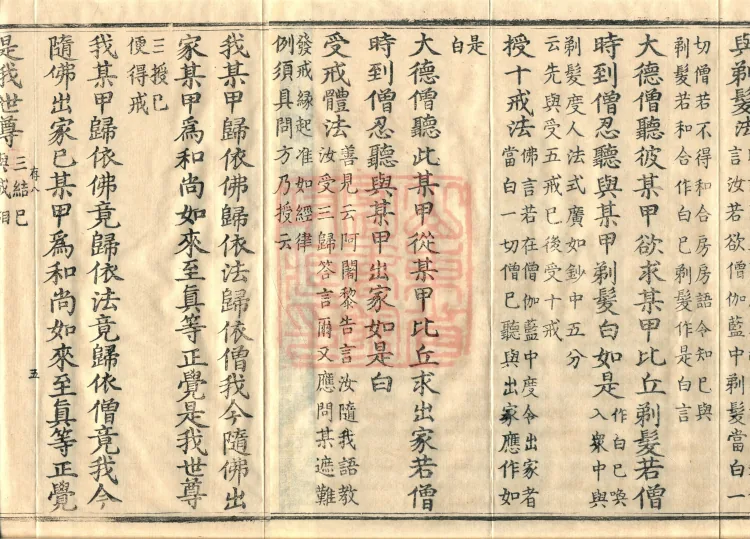 與剃髮法言汝若欲僧伽藍中剃髮當白一
切僧若不得和合房房語令知已與
剃髮若和合作白已剃髮作是白言
大德僧聽彼某甲欲求某甲比丘剃髮若僧
時到僧忍聽與某甲剃髮白如是作白已喚
入眾中與
剃髮度人法式廣如鈔中五分
云先與受五戒已後受十戒
授十戒法佛言若在僧伽藍中度令出家者
當白一切僧已聽與出家應作如
是
白
大德僧聽此某甲從某甲比丘求出家若僧
時到僧忍聽與某甲出家如是白
受戒體法善見云阿闍黎告言汝隨我語教
汝受三歸答言爾又應問某遮難
發戒緣起准如經律
例須具問方乃授云
我某甲歸依佛歸依法歸依僧我今隨佛出
家某甲為和尚如來至真等正覺是我世尊
三授已
便得戒
我某甲歸依佛竟歸依法竟歸依僧竟我今
隨佛出家已某甲為和尚如來至真等正覺
存八
五
是我世尊三結已
與戒相